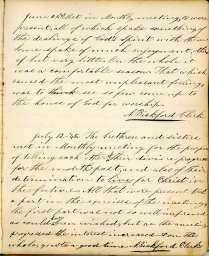 June 14 Met in Monthly meeting, 12 were
present, all of which spake something of
the dealings of God's spirit with them
Some spake of much enjoyment, others
of but very little. On the whole it
was a comfortable season. That which
caused the most unpleasant feelings
was to think see so few come up to
the house of God for worship.
A. Bickford Clerk
July 12 The brethren and sisters
met in Monthly meeting for the purpose
of telling each other their divine progress
for the month past, and also of their
determination to live for Christ in
the future. All that were present took
a part in the exercises of the meeting,
the first part was not so well improved
as could been wished, but as the meeting
progressed the interest increased. on the
whole, quite a good time A. Bickford Clerk